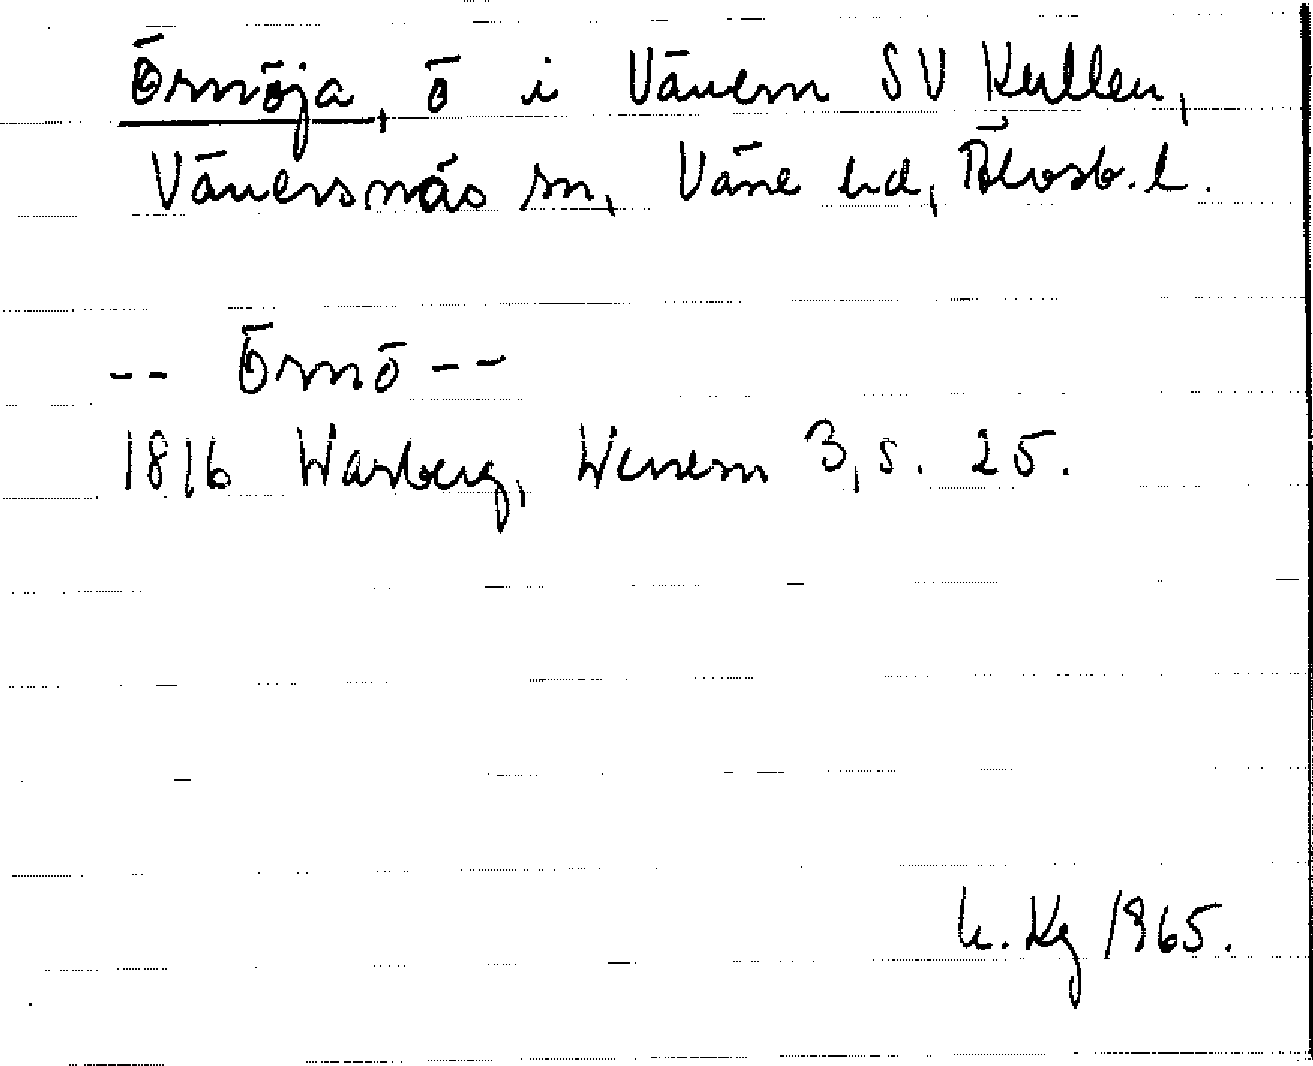 Örnöja, ö i Vänern SV Kullen,
Vänersnäs sn, Väne hd, Älvsb. l.
-- Örnö --
1816 Warberg, Wenern 3, s. 25.
h. Kg 1965.